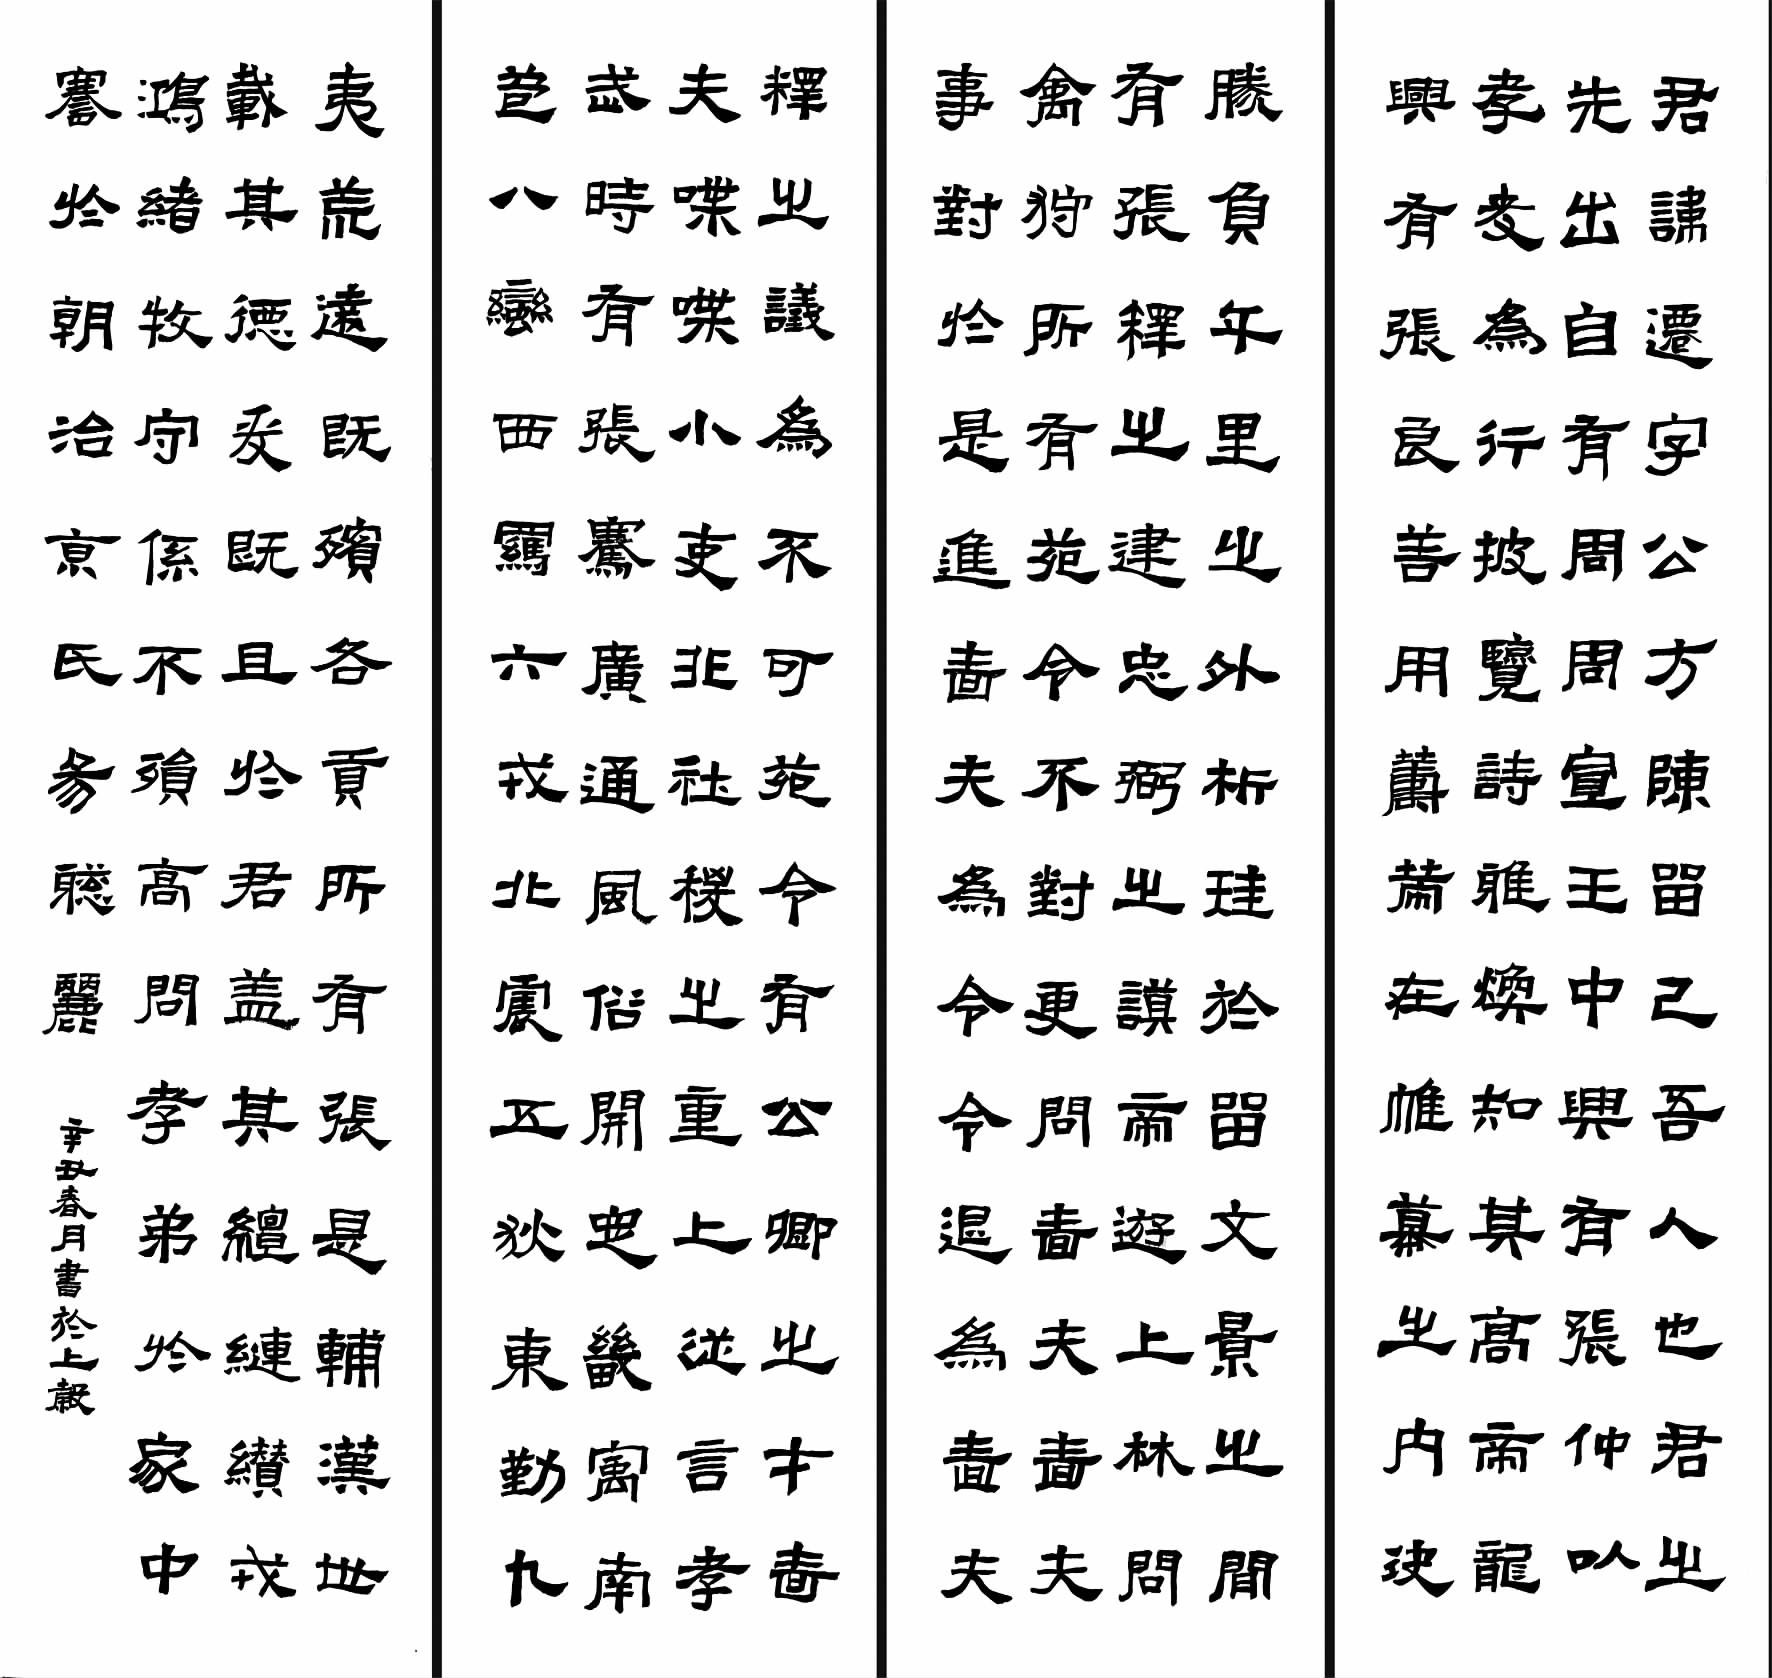 君諱遷字公方陳留己吾人也君之
先出自有周周宣王中興有張仲以
孝友為行披覽詩雅煥知其高帝龍
興有張良善用籌策在帷幕之內決
勝負千里之外析珪於留文景之間
有張釋之建忠弼之謨帝遊上林問
禽狩所有苑令不對更問嗇夫嗇夫
事對於是進嗇夫為令令退為嗇夫
釋之議為不可苑令有公卿之才嗇
夫喋喋小吏非社稷之重上從言孝
武時有張騫廣通風俗開定畿寓南
苞八蠻西羈六戎北震五狄東勤九
夷荒遠既殯各貢所有張是輔漢世
載其德爰既且於君蓋其繵縺纘戎
鴻緒牧守係不殞高問孝弟於家中
謇於朝治京氏易聰麗
辛丑春月書於上穀